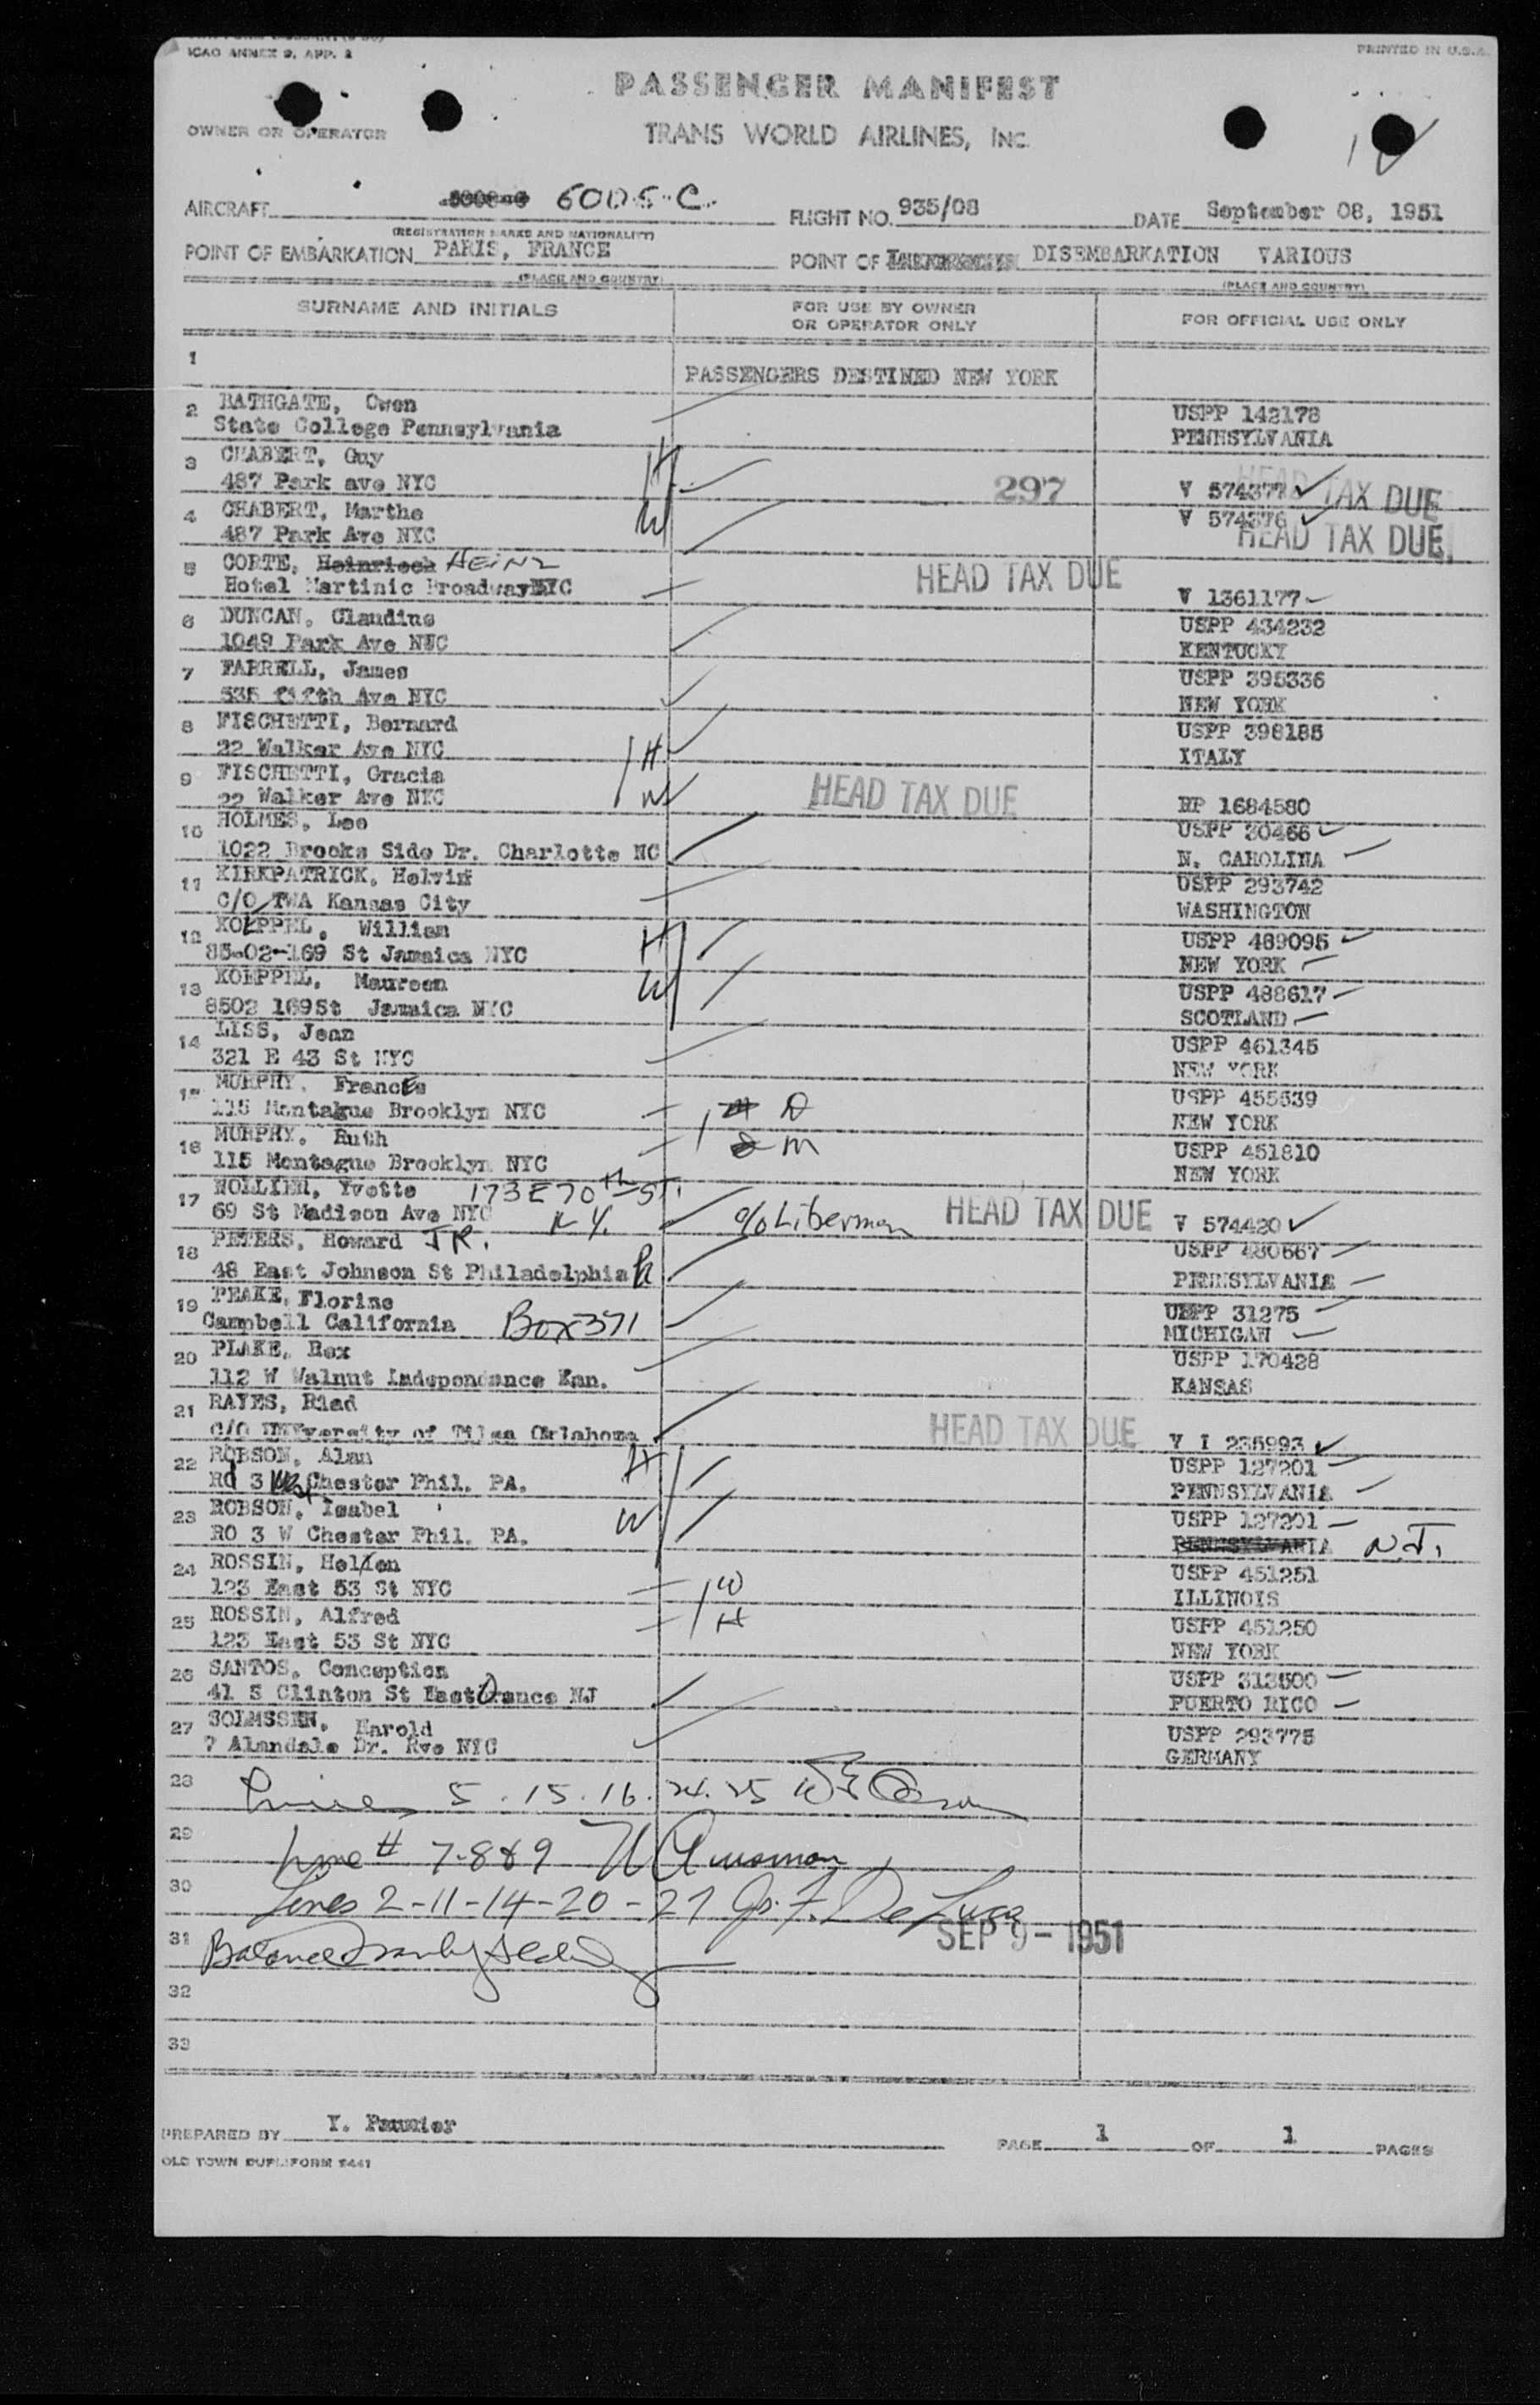 ICAO ANNEX 9, APP. 2
PRINTED IN U.S.A.
PASSENGER MANIFEST
OWNER OR OPERATOR
TRANS WORLD AIRLINES, INC.
AIRCRAFT 6005-C FLIGHT NO. 935/08 DATE September 08, 1951
(REGISTRATION MARKS AND NATIONALITY)
POINT OF EMBARKATION PARIS, FRANCE POINT OF DISEMBARKATION VARIOUS
(PLACE AND COUNTRY) (PLACE AND COUNTRY)
SURNAME AND INITIALS FOR USE BY OWNER OR OPERATOR ONLY FOR OFFICIAL USE ONLY
1
PASSENGERS DESTINED NEW YORK
2 BATHGATE, Owen USPP 142178
State College Pennsylvania PENNSYLVANIA
3 CHABERT, Guy H
487 Park ave NYC 297 V 574377 HEAD TAX DUE
4 CHABERT, Marthe W V 574376 HEAD TAX DUE
487 Park Ave NYC
5 CORTE, Heinrich HEINZ HEAD TAX DUE
Hotel Martinic BroadwayNYC V 1361177
6 DUNCAN, Claudine USPP 434232
1049 Park Ave NYC KENTUCKY
7 FARRELL, James USPP 395336
535 fifth Ave NYC NEW YORK
8 FISCHETTI, Bernard USPP 398185
22 Walker Ave NYC H ITALY
9 FISCHETTI, Gracia HEAD TAX DUE
22 Walker Ave NYC W RP 1684580
10 HOLMES, Lee USPP 30466
1022 Brooks Side Dr. Charlotte NC N. CAROLINA
11 KIRKPATRICK, Helvin USPP 293742
C/O TWA Kansas City WASHINGTON
12 KOEPPEL, William H USPP 489095
85-02-169 St Jamaica NYC NEW YORK
13 KOEPPEL, Maureen W USPP 488617
8502 169St Jamaica NYC SCOTLAND
14 LISS, Jean USPP 461345
321 E 43 St NYC NEW YORK
15 MURPHY, Frances USPP 455539
115 Montague Brooklyn NYC D NEW YORK
16 MURPHY, Ruth M USPP 451810
115 Montague Brooklyn NYC NEW YORK
17 NOLLIER, Yvette 173 E 70th ST.
69 St Madison Ave NYC N.Y. c/o Liberman HEAD TAX DUE V 574420
18 PETERS, Howard JR. USPP 480667
48 East Johnson St Philadelphia Pa PENNSYLVANIA
19 PEAKE, Florine USPP 31275
Campbell California Box 371 MICHIGAN
20 PLAKE, Rex USPP 170428
112 W Walnut Independance Kan. KANSAS
21 RAYES, Riad
C/O UNIversity of Tulsa Oklahoma HEAD TAX DUE V I 235993
22 ROBSON, Alan H USPP 127201
Rd 3 West Chester Phil. PA. PENNSYLVANIA
23 ROBSON, Isabel W USPP 127201
RO 3 W Chester Phil. PA. PENNSYLVANIA N.J.
24 ROSSIN, Hellen USPP 451251
123 East 53 St NYC W ILLINOIS
25 ROSSIN, Alfred H USPP 451250
123 East 53 St NYC NEW YORK
26 SANTOS, Conception USPP 313500
41 S Clinton St East Orance NJ PUERTO RICO
27 SOLMSSEN, Harold USPP 293775
7 Alandale Dr. Rye NYC GERMANY
28 Lines 5. 15. 16. 24. 25
29 Line # 7-8&9
30 Lines 2-11-14-20-27 Jos. F. De Luca
31 Balance SEP 9-1951
32
33
PREPARED BY Y. Paumier PAGE 1 OF 1 PAGES
OLD TOWN DUPLIFORM 9441